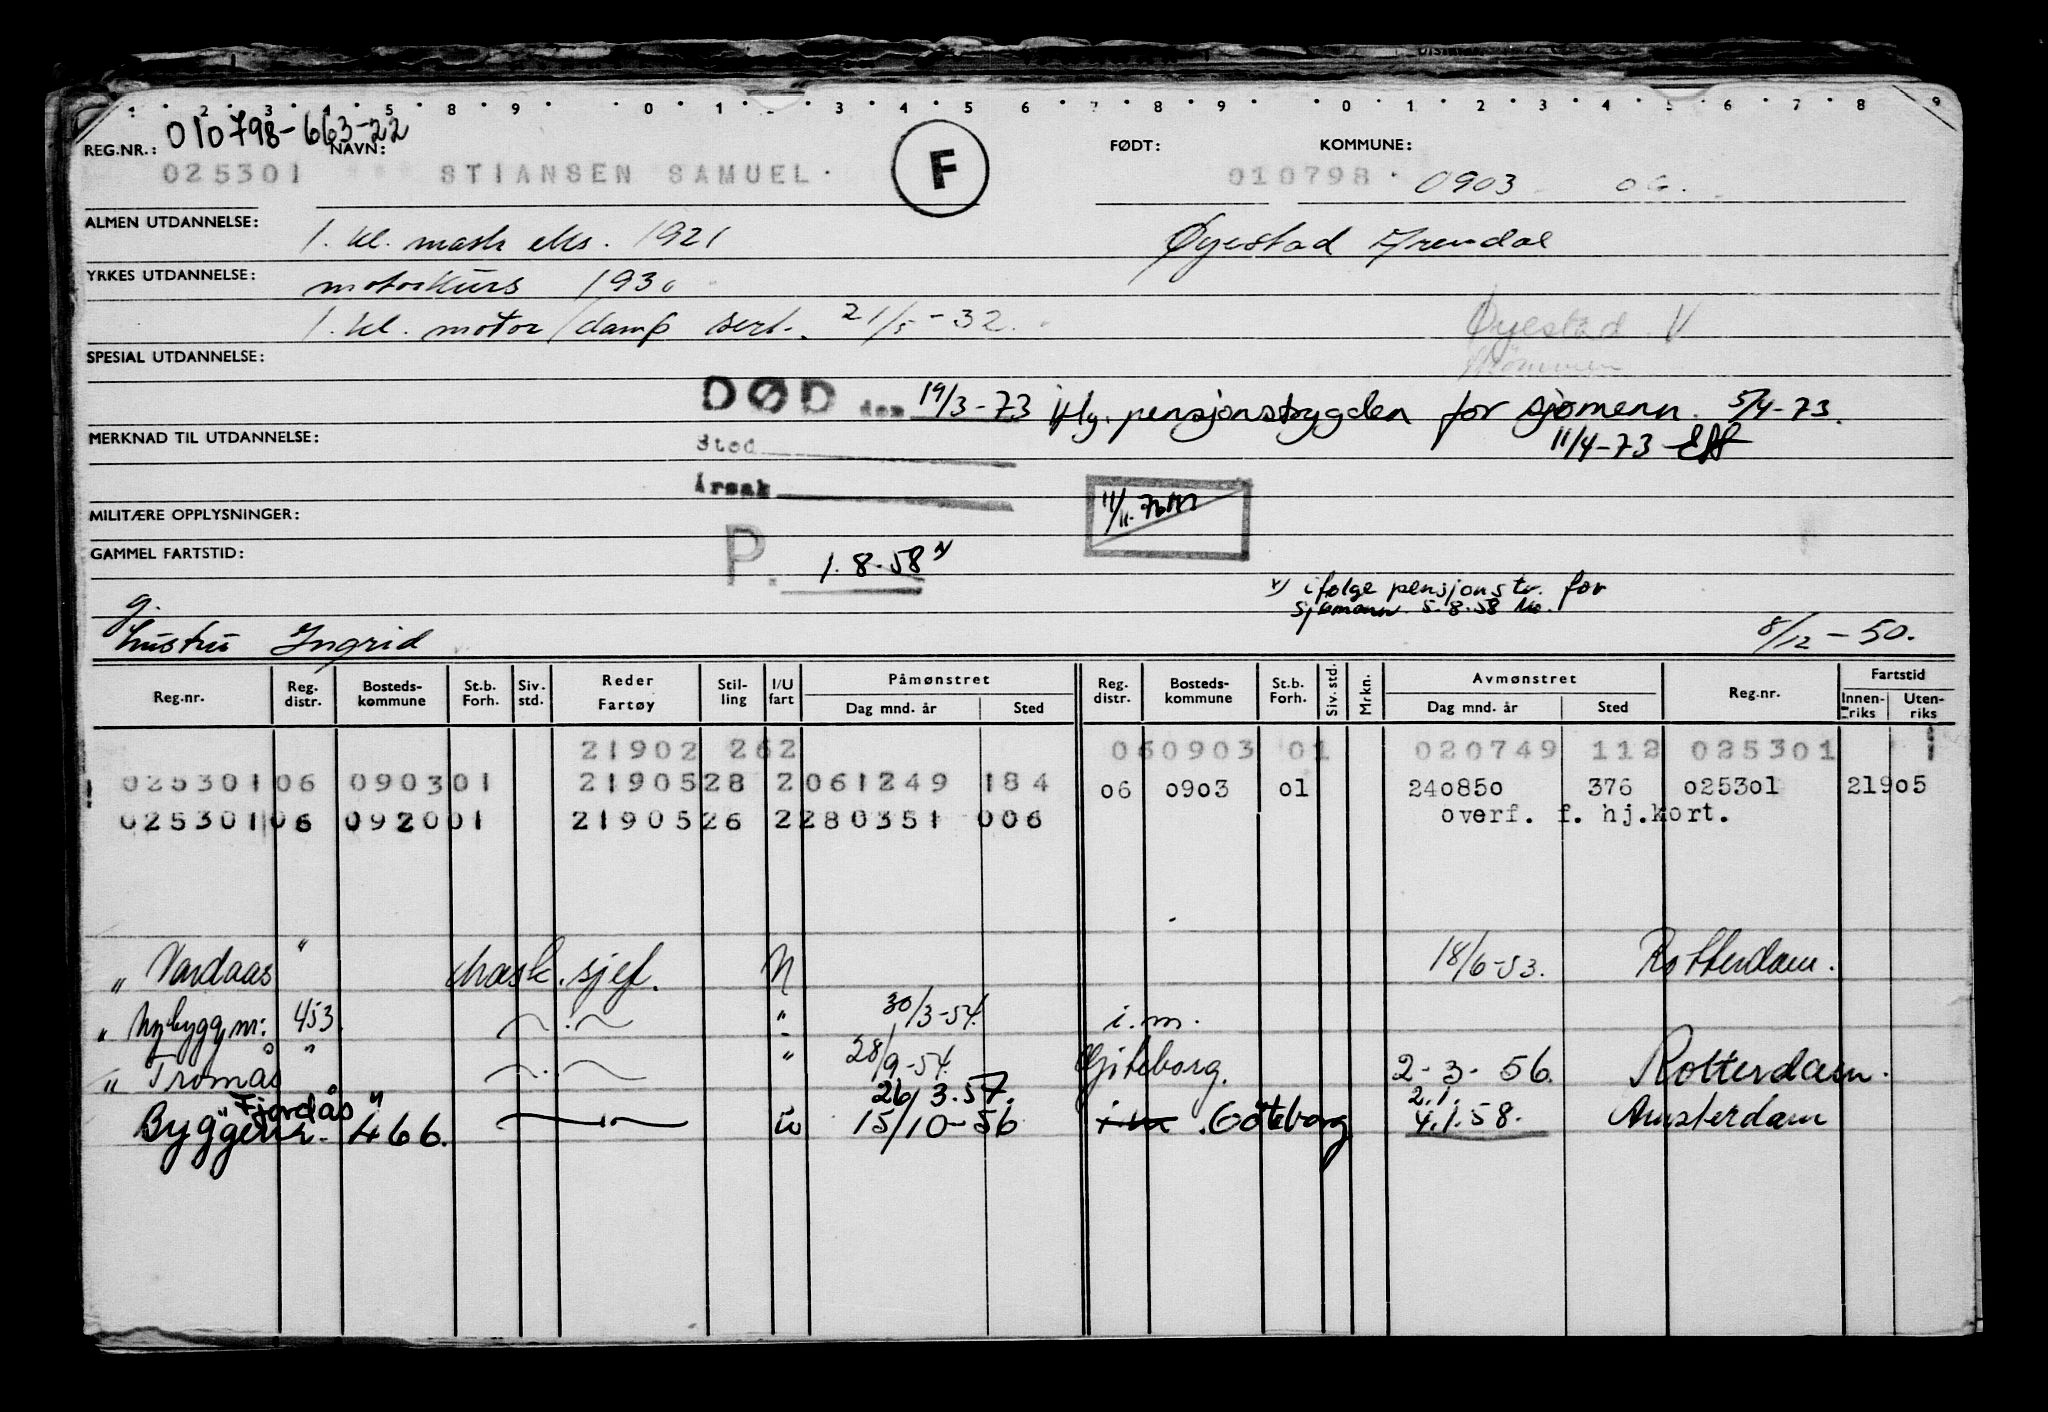 1 2 3 4 5 8 9 0 1 3 4 5 6 7 8 9 0 1 2 3 4 5 6 7 8 9
010798-663-22
REG.NR.: NAVN: FØDT: KOMMUNE:
025301 STIANSEN SAMUEL. F 010798 0903 06.
ALMEN UTDANNELSE: 1. kl. mask eks. 1921 Øyestad Arendal
YRKES UTDANNELSE: motorkurs 1930
1. kl. motor/damp sert. 21/5-32. Øyestad V
SPESIAL UTDANNELSE: Strømmen
DØD den 19/3-73 iflg. pensjonstrygden for sjømenn. 5/4-73.
MERKNAD TIL UTDANNELSE: Sted 11/4-73
Årsak
MILITÆRE OPPLYSNINGER:
GAMMEL FARTSTID: P. 1.8.58 x)
x) ifølge pensjonstr. for
sjømenn 5.8.58
g.
hustru Ingrid 8/12-50.
Reg.nr. Reg. distr. Bosteds- kommune St.b. Forh. Siv. std. Reder Fartøy Stil- ling I/U fart Påmønstret Dag mnd. år Sted Reg. distr. Bosteds- kommune St.b. Forh. Siv. std. Mrkn. Avmønstret Dag mnd. år Sted Reg.nr. Fartstid Innen- riks Uten- riks
21902 262 060903 01 020749 112 025301 1
02530106 090301 2190528 2061249 184 06 0903 01 240850 376 025301 21905
02530106 092001 2190526 2280351 006 overf. f. hj.kort.
" Vardaas " mask. sjef. U 18/6-53. Rotterdam.
" Nybygg nr: 453. " 30/3-54. i.m.
" Tromås " " 28/9-54. Göteborg. 2-3-56. Rotterdam.
"Fjordås" 26/3.57. 2.1.
Byggenr. 466. u 15/10-56 i.m. Göteborg 4.1.58. Amsterdam